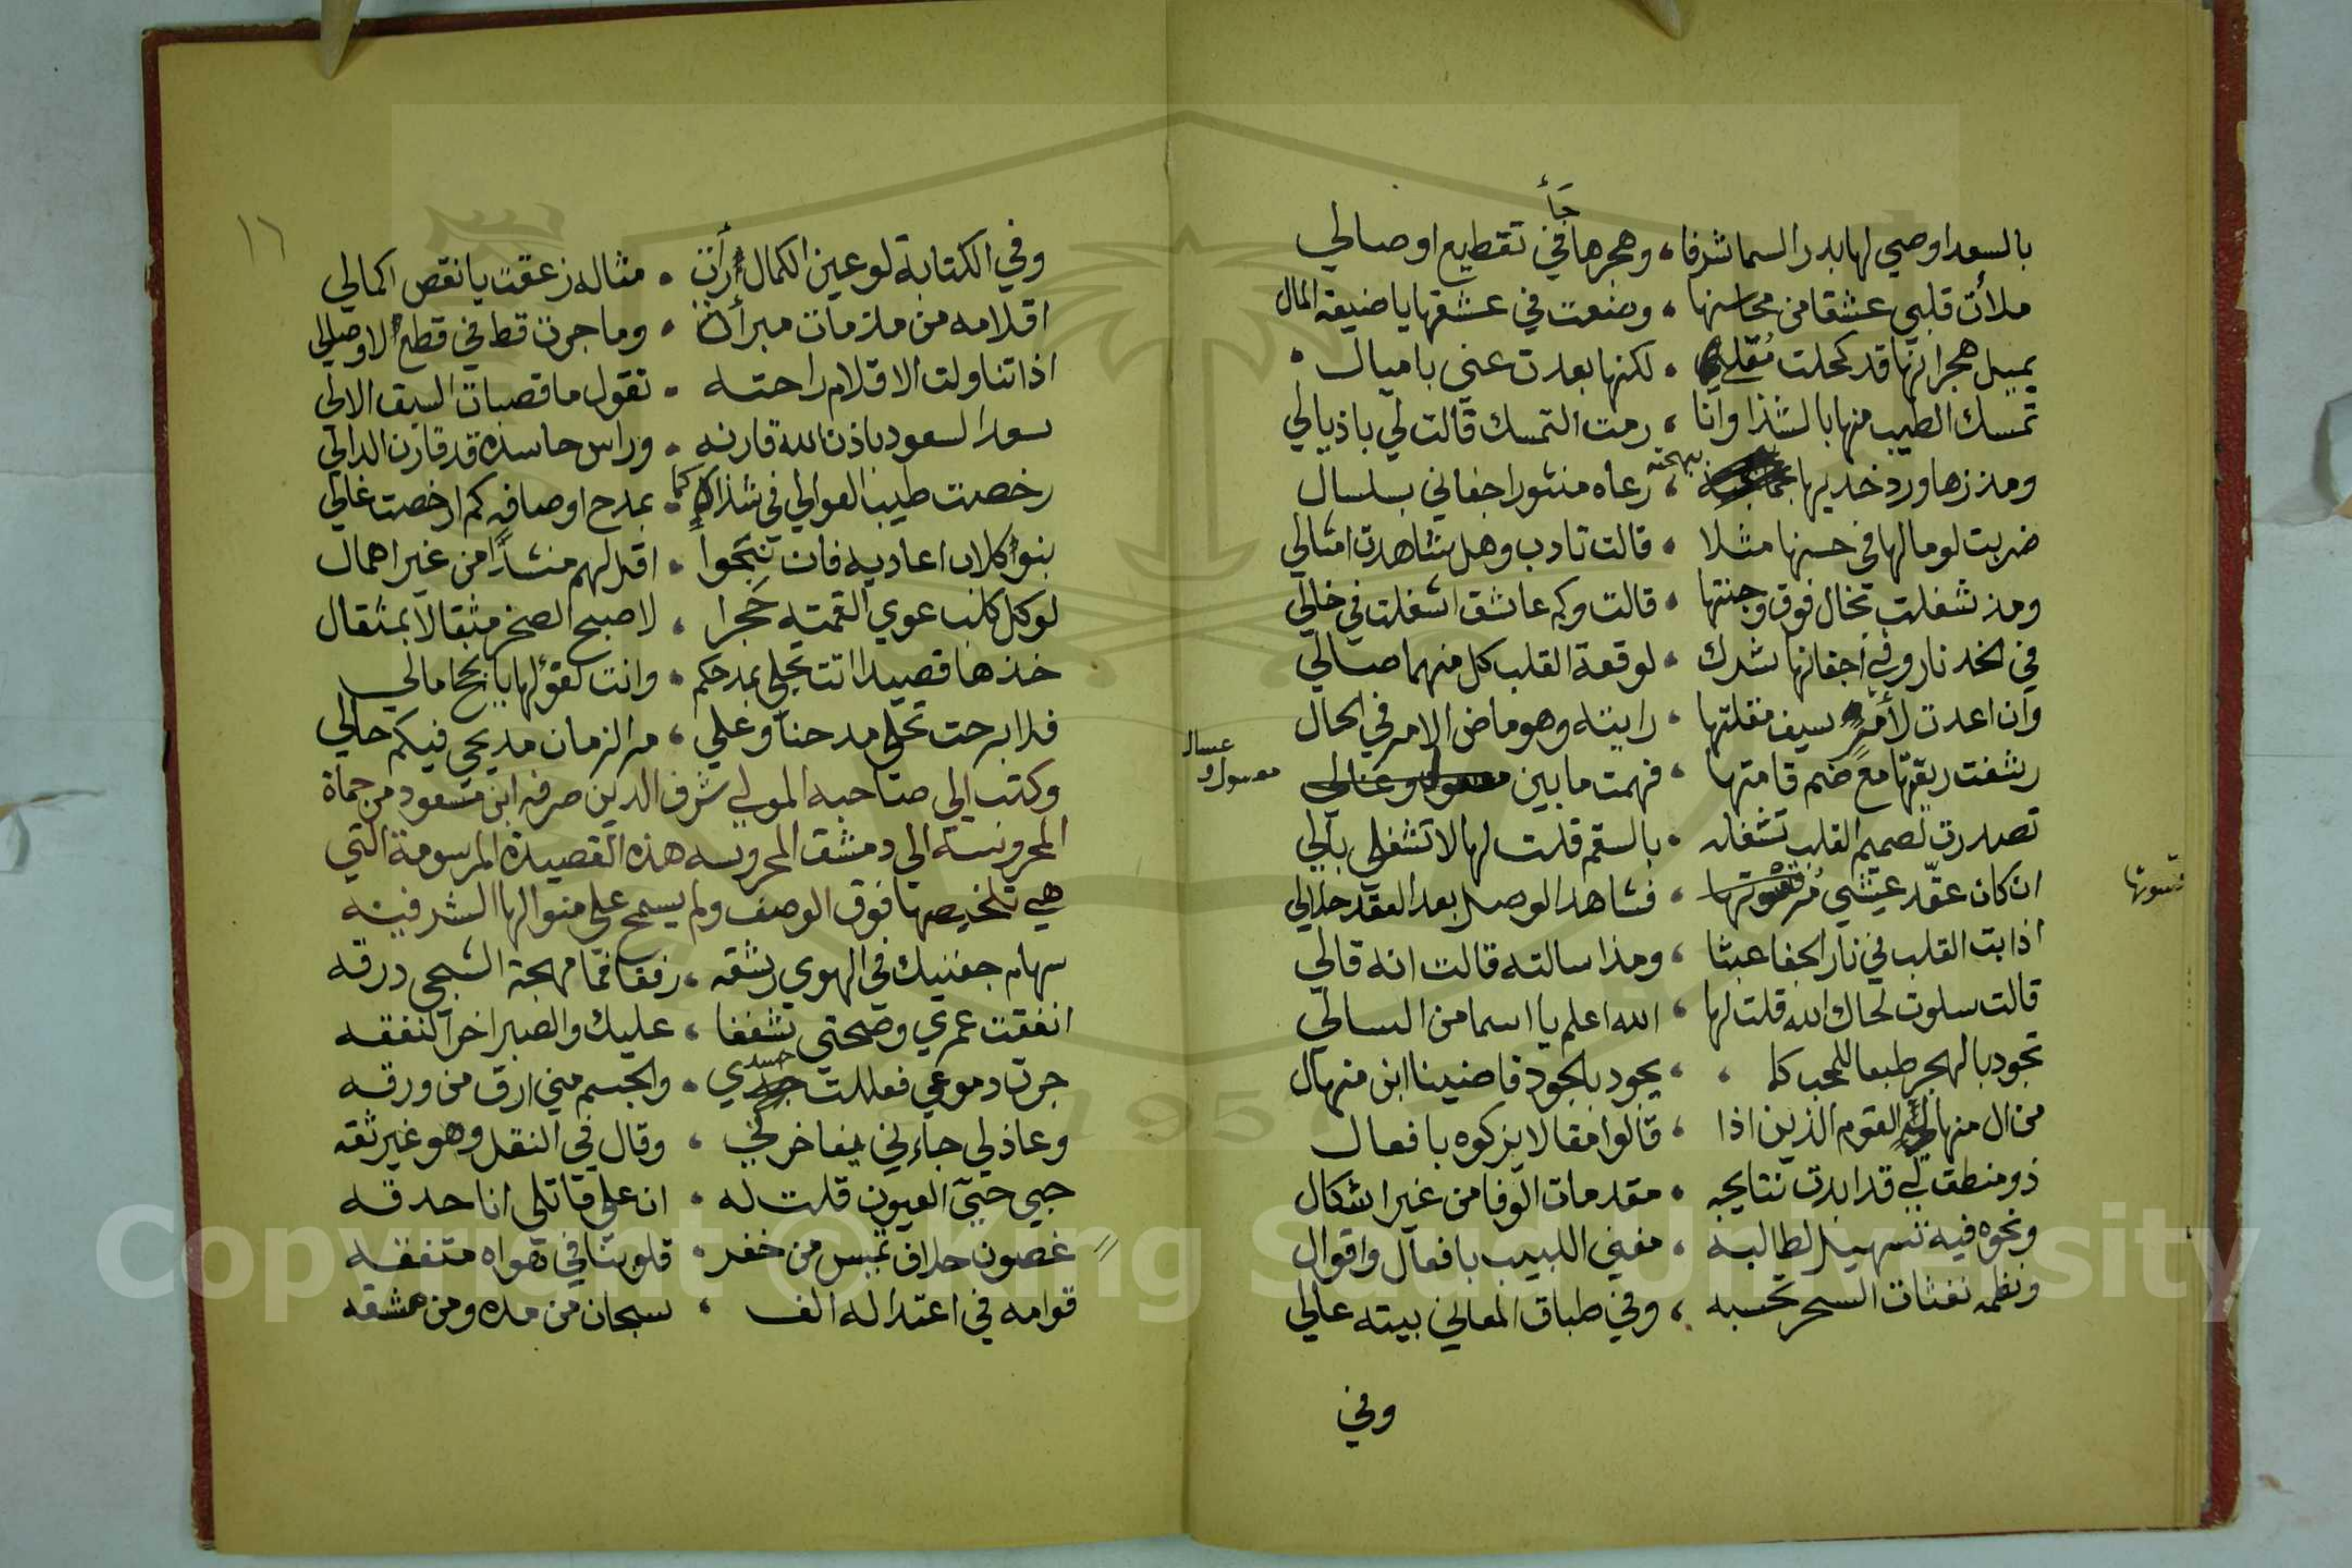 بالسعد اوصي لها بدر السما شرفا ، وهجرها جأ في تقطيع اوصالي
ملأت قلبي عشقا من محاسنها ، وضعت في عشقها يا ضيعة المال
بميل هجرانها قد كحلت مقلي ، لكنها بعدت عني باميال
تمسك الطيب منها بالشذا وانا ، رمت التمسك قالت لي باذيالي
ومذ زها ورد خديها ببهجته ، رعاه منثور اجفاني بسلسال
ضربت لوما لها في حسنها مثلا ، قالت تادب وهل شاهدت امثالي
ومذ شغلت بخال فوق وجنتها ، قالت وكم عاشق اشغلت في خالي
في الخد نار وفي أجفانها شرك ، لوقعة القلب كل منهما صالي
وان اعدت لأمر سيف مقلتها ، رايته وهو ماض الامر في الحال
رشفت ريقتها مع ضم قامتها ، فهمت ما بين معسول وعسال
تصدرت لصميم القلب تشغله ، بالسقم قلت لها لا تشغلي بالي
ان كان عقّد عيشي مُر قسوتها ، فشاهد الوصل بعد العقد حلالي
اذابت القلب في نار الجفا عبثا ، ومذ اسالته قالت انه قالي
قالت سلوت لحاك الله قلت لها ، الله اعلم يا اسما من السالي
تجود بالهجر طبعا للمحب كما ، يجود بالجود قاضينا ابن منهال
من ال منهال القوم الذين اذا ، قالوا مقالا يزكوه بافعال
ذو منطق لي قد ابدت نتايجه ، مقدمات الوفا من غير اشكال
ونحوه فيه تسهيل لطالبه ، مغني اللبيب بافعال واقوال
ونظمه نفثات السحر تحسبه ، وفي طباق المعاني بيته عالي
وفي
معسول وعسال
قسوتها
١٦
وفي الكتابة لو عين الكمال رأت ، مثاله زعقت يا نقص اكمالي
اقلامه من ملزمات مبرأة ، وما جرت قط في قطع لاوصالي
اذا تناولت الاقلام راحته ، تقول ما قصبات السبق الا لي
سعد السعود باذن الله قارنه ، وراس حاسده قد قارن الدالي
رخصت طيب الغوالي في شذاك كما ، بمدح اوصافه كم ارخصت غالي
بنو كلاب اعاديه فان نبحوا ، اقد لهم منشدا من غير اهمال
لو كل كلب عوي القمته حجرا ، لاصبح الصخر مثقالا بمثقال
خذها قصيدا اتت تجلي بمدحكم ، وانت كفؤ لها يا بحر امالي
فلا برحت تحلي مدحنا وعلي ، مر الزمان مديحي فيكم حالي
وكتب الي صاحبه المولي شرف الدين صرفه ابن مسعود من حماة
المحروسة الي دمشق المحروسه هذه القصيدة المرسومة التي
هي تلخيصها فوق الوصف ولم يسمح علي منوالها الشرفيته
سهام جفنيك في الهوي رشقه ، رفقا فما مهجة الشجي درقه
انفقت عمري وصحتي شغفا ، عليك والصبر اخر النفقه
جرت دموعي فعللت جسدي ، والجسم مني ارق من ورقه
وعاذلي جاءني يفاخرني ، وقال في النقل وهو غير ثقه
حبي حيي العيون قلت له ، ان علي قاتلي انا حدقه
غصون خلاف تميس من خفر ، قلوبنا في هواه متفقه
قوامه في اعتداله الف ، سبحان من مده ومن مشقه
Copyright © King Saud University
1957